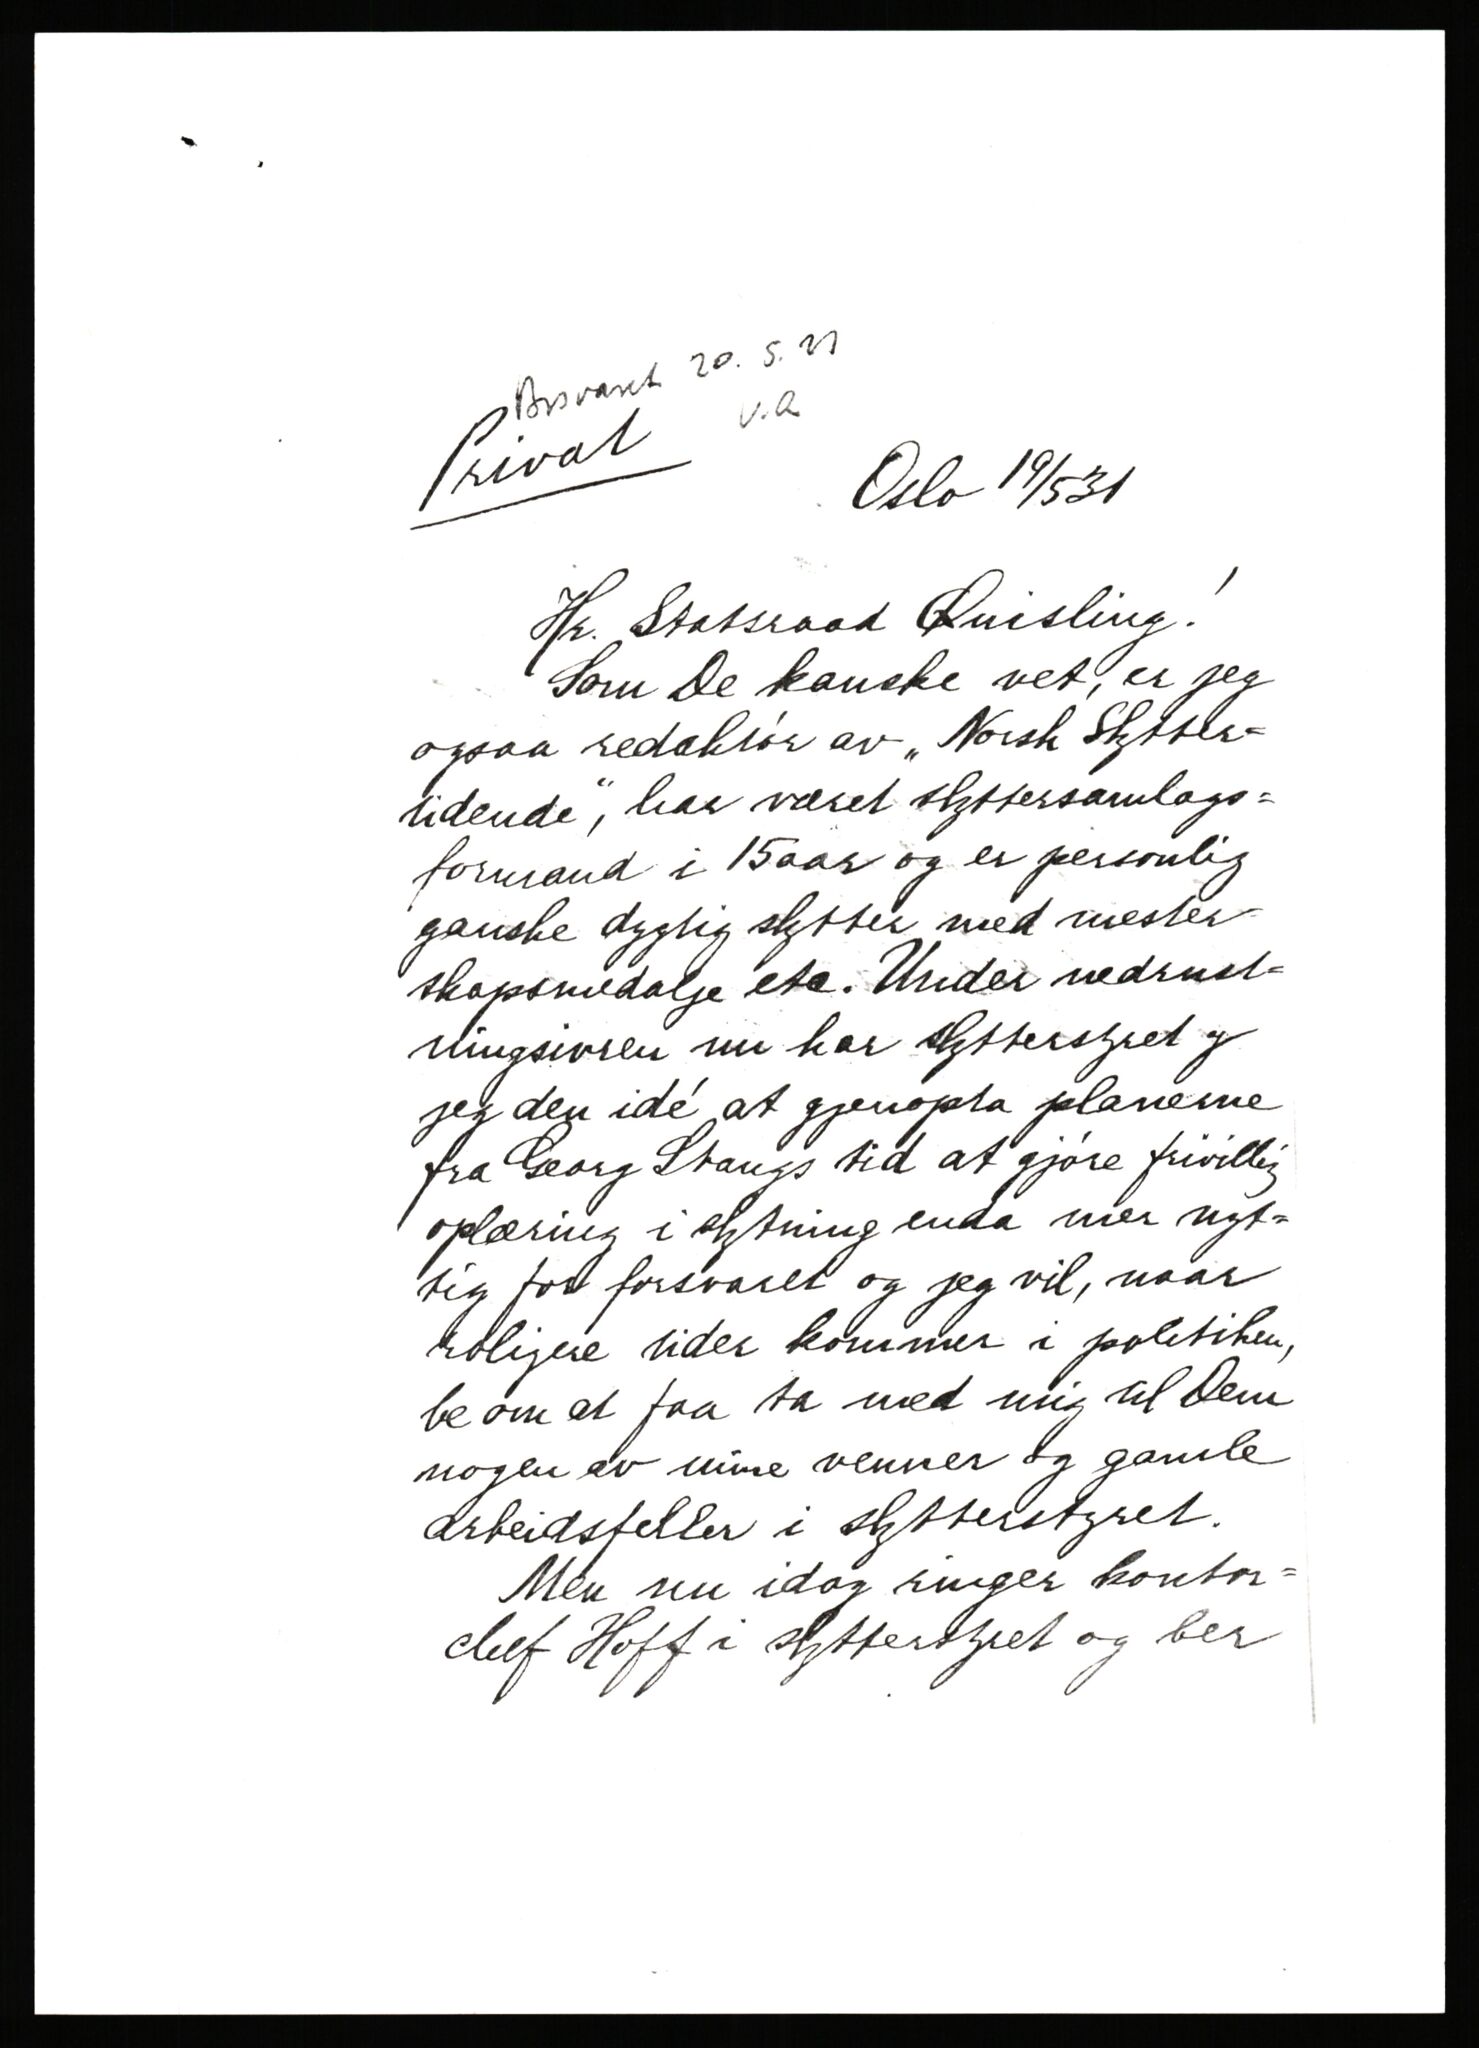 Besvaret 20.5.31
V.Q.
Privat
Oslo 19/5 31
Hr. Statsraad Quisling!
Som De kanske vet, er jeg
ogsaa redaktør av „Norsk Skytter=
tidende", har været skyttersamlags=
formand i 15 aar og er personlig
ganske dygtig skytter med mester
skapsmedalje etc. Under nedrust=
ningsivren nu har skytterstyret og
jeg den idé at gjenopta planerne
fra Georg Stangs tid at gjøre frivillig
oplæring i skytning enda mer nyt=
tig for forsvaret og jeg vil, naar
roligere tider kommer i politiken,
be om at faa ta med mig til Dem
nogen av mine venner og gamle
arbeidsfeller i skytterstyret.
Men nu idag ringer kontor=
chef Hoff i skytterstyret og ber